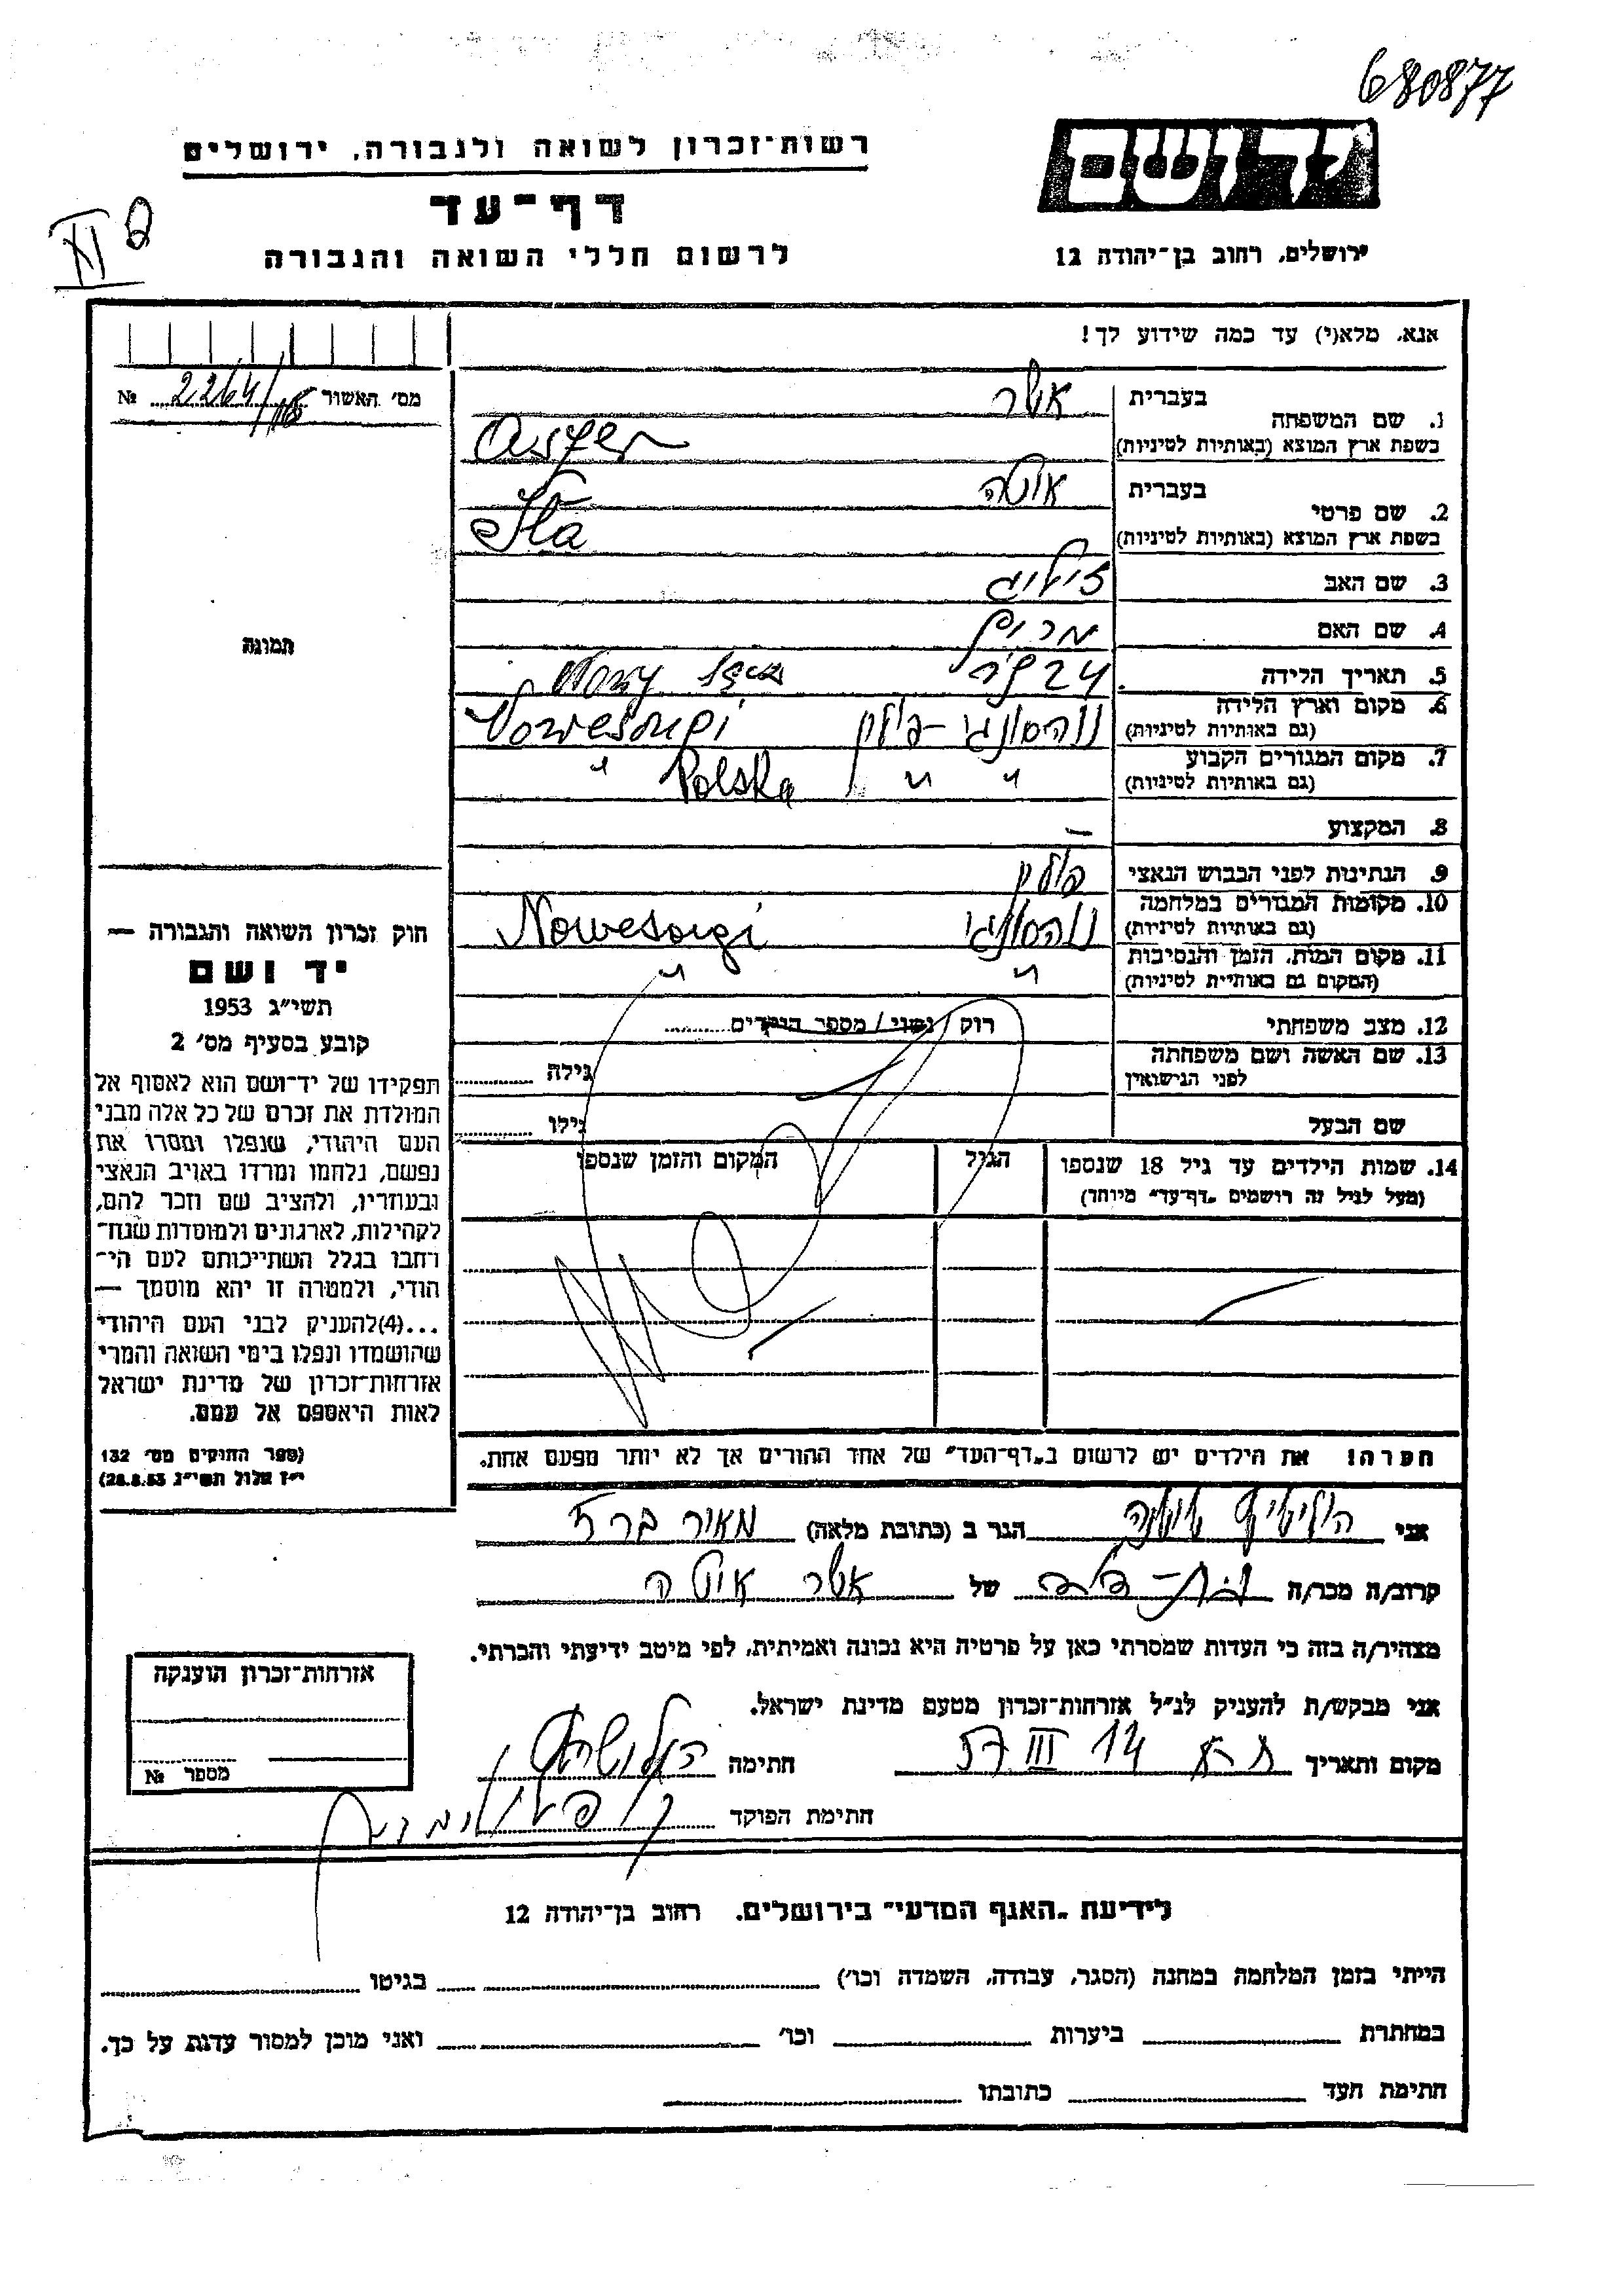 680877
רשות־זכרון לשואה ולגבורה, ירושלים
יד ושם
דף־עד
לרשום חללי השואה והגבורה
ירושלים, רחוב בן־יהודה 12
אנא, מלא(י) עד כמה שידוע לך!
מס׳ האשור № 2264/
1. שם המשפחה
בעברית אשר
בשפת ארץ המוצא (באותיות לטיניות) Aszer
2. שם פרטי
בעברית איטה
בשפת ארץ המוצא (באותיות לטיניות) Ita
3. שם האב זיליג
4. שם האם מרים
5. תאריך הלידה 24 Nowy
6. מקום וארץ הלידה
(גם באותיות לטיניות) פולין
7. מקום המגורים הקבוע
(גם באותיות לטיניות) " " Polska "
8. המקצוע —
9. הנתינות לפני הכבוש הנאצי פולין
10. מקומות המגורים במלחמה
(גם באותיות לטיניות) Nowesorgi
11. מקום המות, הזמן והנסיבות
(המקום גם באותיות לטיניות) " "
12. מצב משפחתי רוק / נשוי / מספר הילדים
13. שם האשה ושם משפחתה
לפני הנישואין גילה
שם הבעל גילו
14. שמות הילדים עד גיל 18 שנספו
(מעל לגיל זה רושמים „דף־עד" מיוחד)
הגיל
המקום והזמן שנספו
תמונה
חוק זכרון השואה והגבורה —
יד ושם
תשי״ג 1953
קובע בסעיף מס׳ 2
תפקידו של יד־ושם הוא לאסוף אל
המולדת את זכרם של כל אלה מבני
העם היהודי, שנפלו ומסרו את
נפשם, נלחמו ומרדו באויב הנאצי
ובעוזריו, ולהציב שם וזכר להם,
לקהילות, לארגונים ולמוסדות שנח־
רחבו בגלל השתייכותם לעם הי־
הודי, ולמטרה זו יהא מוסמך —
...(4)להעניק לבני העם היהודי
שהושמדו ונפלו בימי השואה והמרי
אזרחות־זכרון של מדינת ישראל
לאות היאספם אל עמם.
(ספר החוקים מס׳ 132
י״ז אלול תשי״ג 28.8.53)
הערה! את הילדים יש לרשום ב„דף־העד" של אחד ההורים אך לא יותר מפעם אחת.
אני הגר ב (כתובת מלאה) מאיר ברז
קרוב/ה מכר/ה של אשר איטה
מצהיר/ה בזה כי העדות שמסרתי כאן על פרטיה היא נכונה ואמיתית, לפי מיטב ידיעתי והכרתי.
אני מבקש/ת להעניק לנ״ל אזרחות־זכרון מטעם מדינת ישראל.
מקום ותאריך ת״א 14 III 57 חתימה
חתימת הפוקד
אזרחות־זכרון הוענקה
מספר №
לידיעת „האגף המדעי" בירושלים, רחוב בן־יהודה 12
הייתי בזמן המלחמה במחנה (הסגר, עבודה, השמדה וכו׳) בגיטו
במחתרת ביערות וכו׳ ואני מוכן למסור עדות על כך.
חתימת העד כתובתו